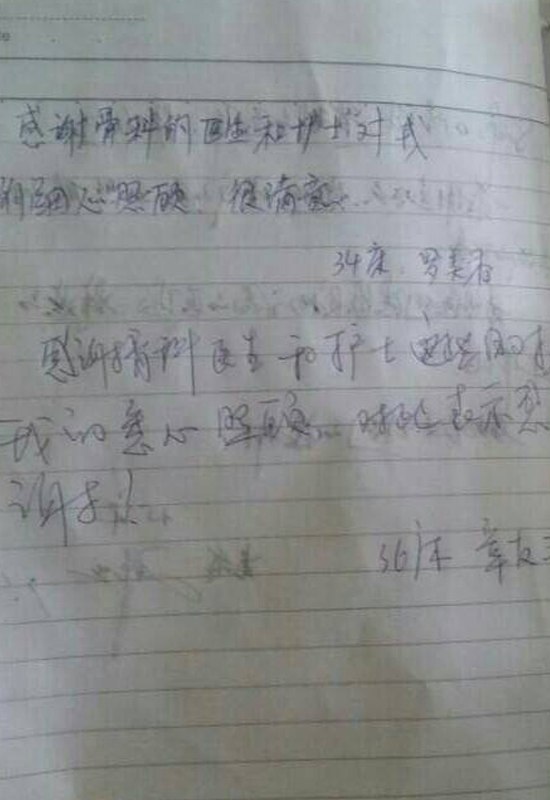 感谢骨科的医生和护士对我
的细心照顾、很满意。
34床 罗美香
感谢骨科医生和护士这些周对
我的悉心照顾。对此表示感
谢
36床 章友